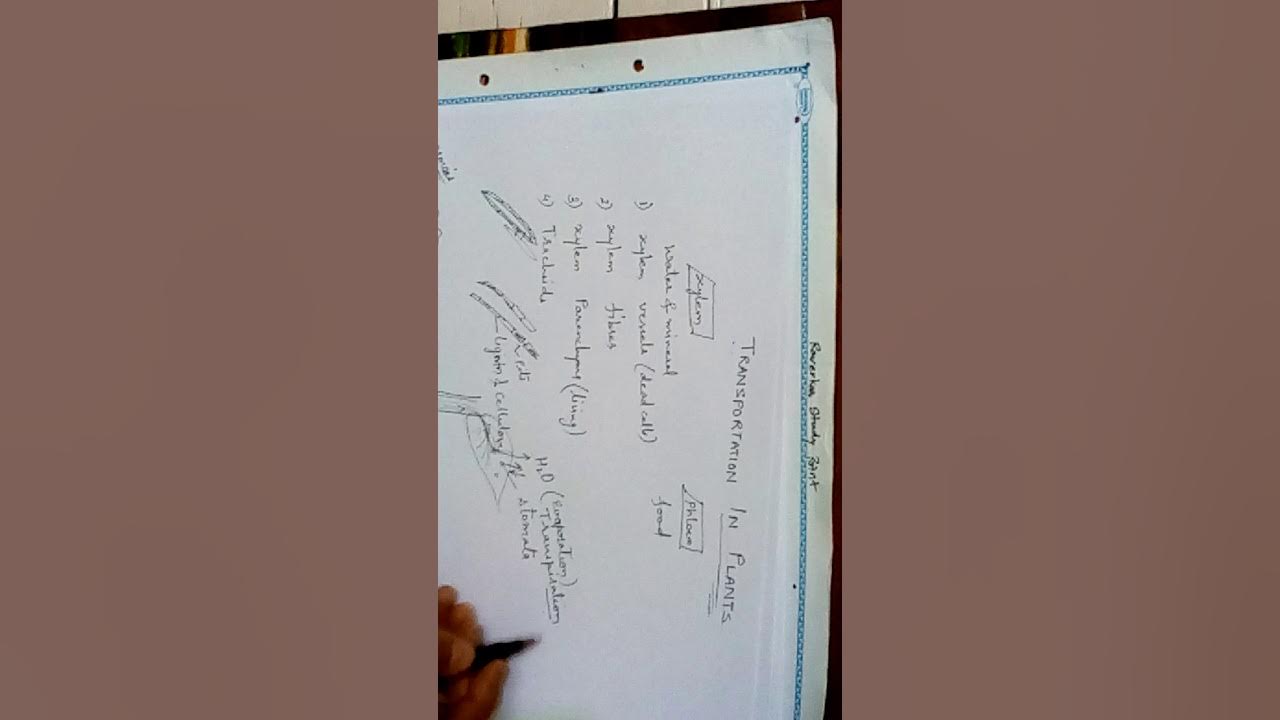 Study Point
TRANSPORTATION IN PLANTS
xylem
phloem
water & mineral
food
1) xylem vessels (dead cells)
2) xylem fibres
3) xylem Parenchyma (living)
4) Tracheids
H2O (Evaporation)
Transpiration
stomata
Pits
lignin & cellulose